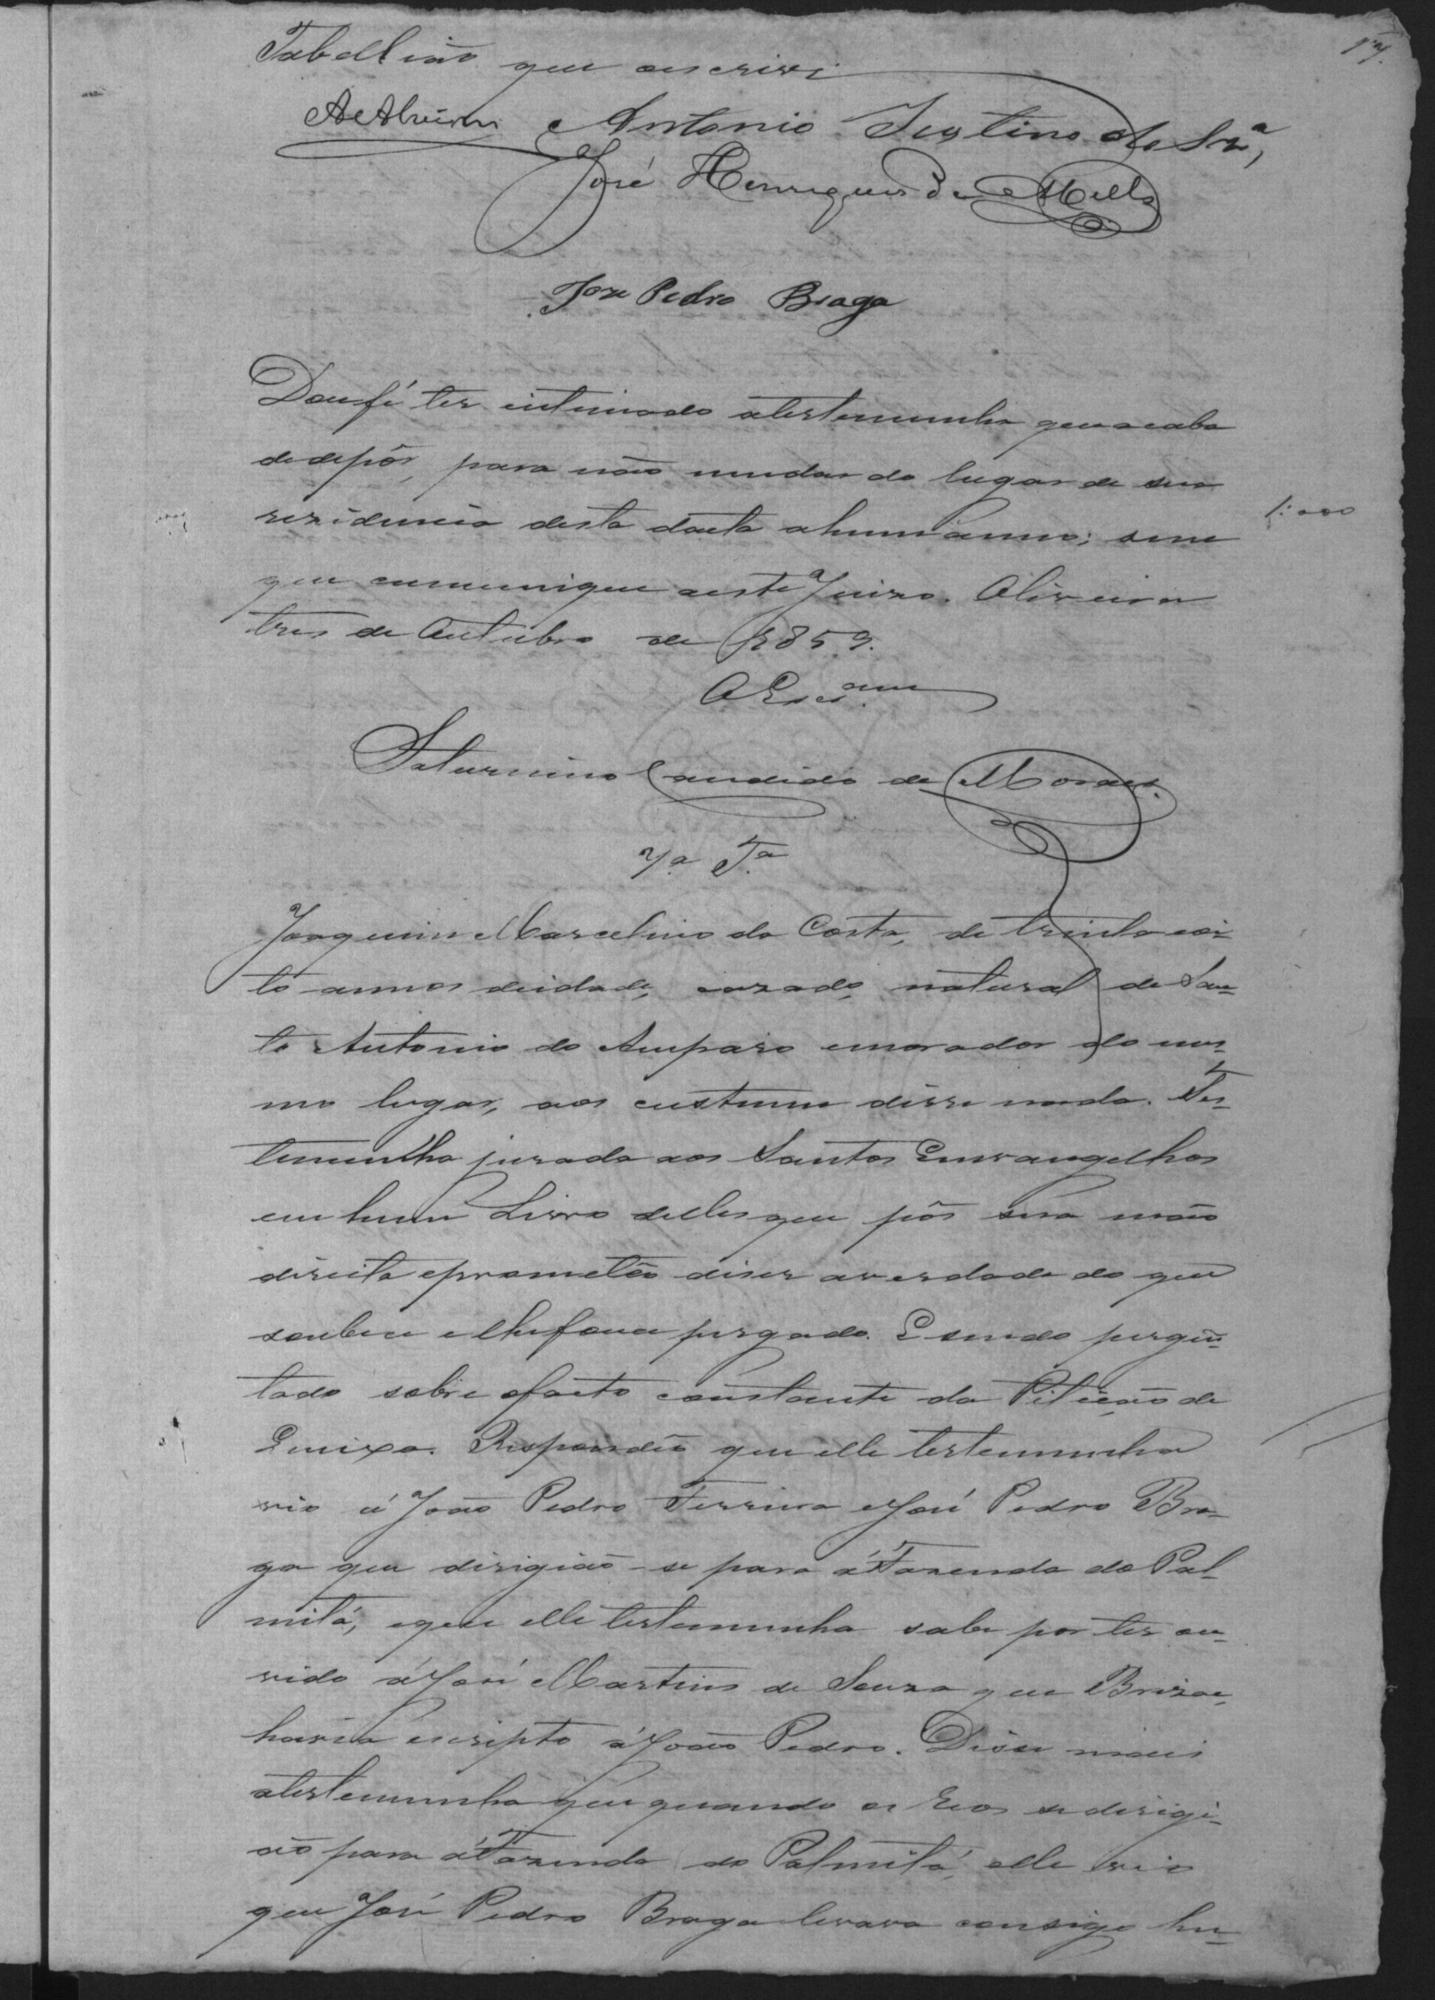 Tabellião que escrivi
Antonio Justino de Sza,
José Henriques de Mello
Joze Pedro Braga
Dou fé ter intimado atestemunha que acaba
de depôr, para não mudar do lugar de sua
rezidencia desta dacta ahum anno; sem
que communique aeste Juizo. Oliveira
tres de Outubro de 1859.
OEscram
Saturnino Candido de Moraes.
7a Ta
Joaquim Marcelino da Costa, de trinta eoi-
to annos deidade, cazado, natural de San-
to Antonio do Amparo emorador do mes-
mo lugar, aos custume disse nada. Tes-
temunha jurada aos Santos Envangelhos
em hum Livro delles que pôs sua mão
direita eprometêo diser averdade do que
soubece elhefoce pergado. E sendo pergũ-
tado sobre ofacto constante da Petição de
Queixa. Respondeu que elle testemunha
vio á João Pedro Ferreira eJosé Pedro Bra-
ga que dirigião-se para áFazenda do Pal-
mitá, eque elle testemunha sabe por ter ou-
vido áJosé Martins de Souza que
havia escripto áJoão Pedro. Disse mais
atestemunha que quando os Reos sedirigi-
ão para áFazenda do Palmitá, elle vio
que José Pedro Braga levava consigo hu-